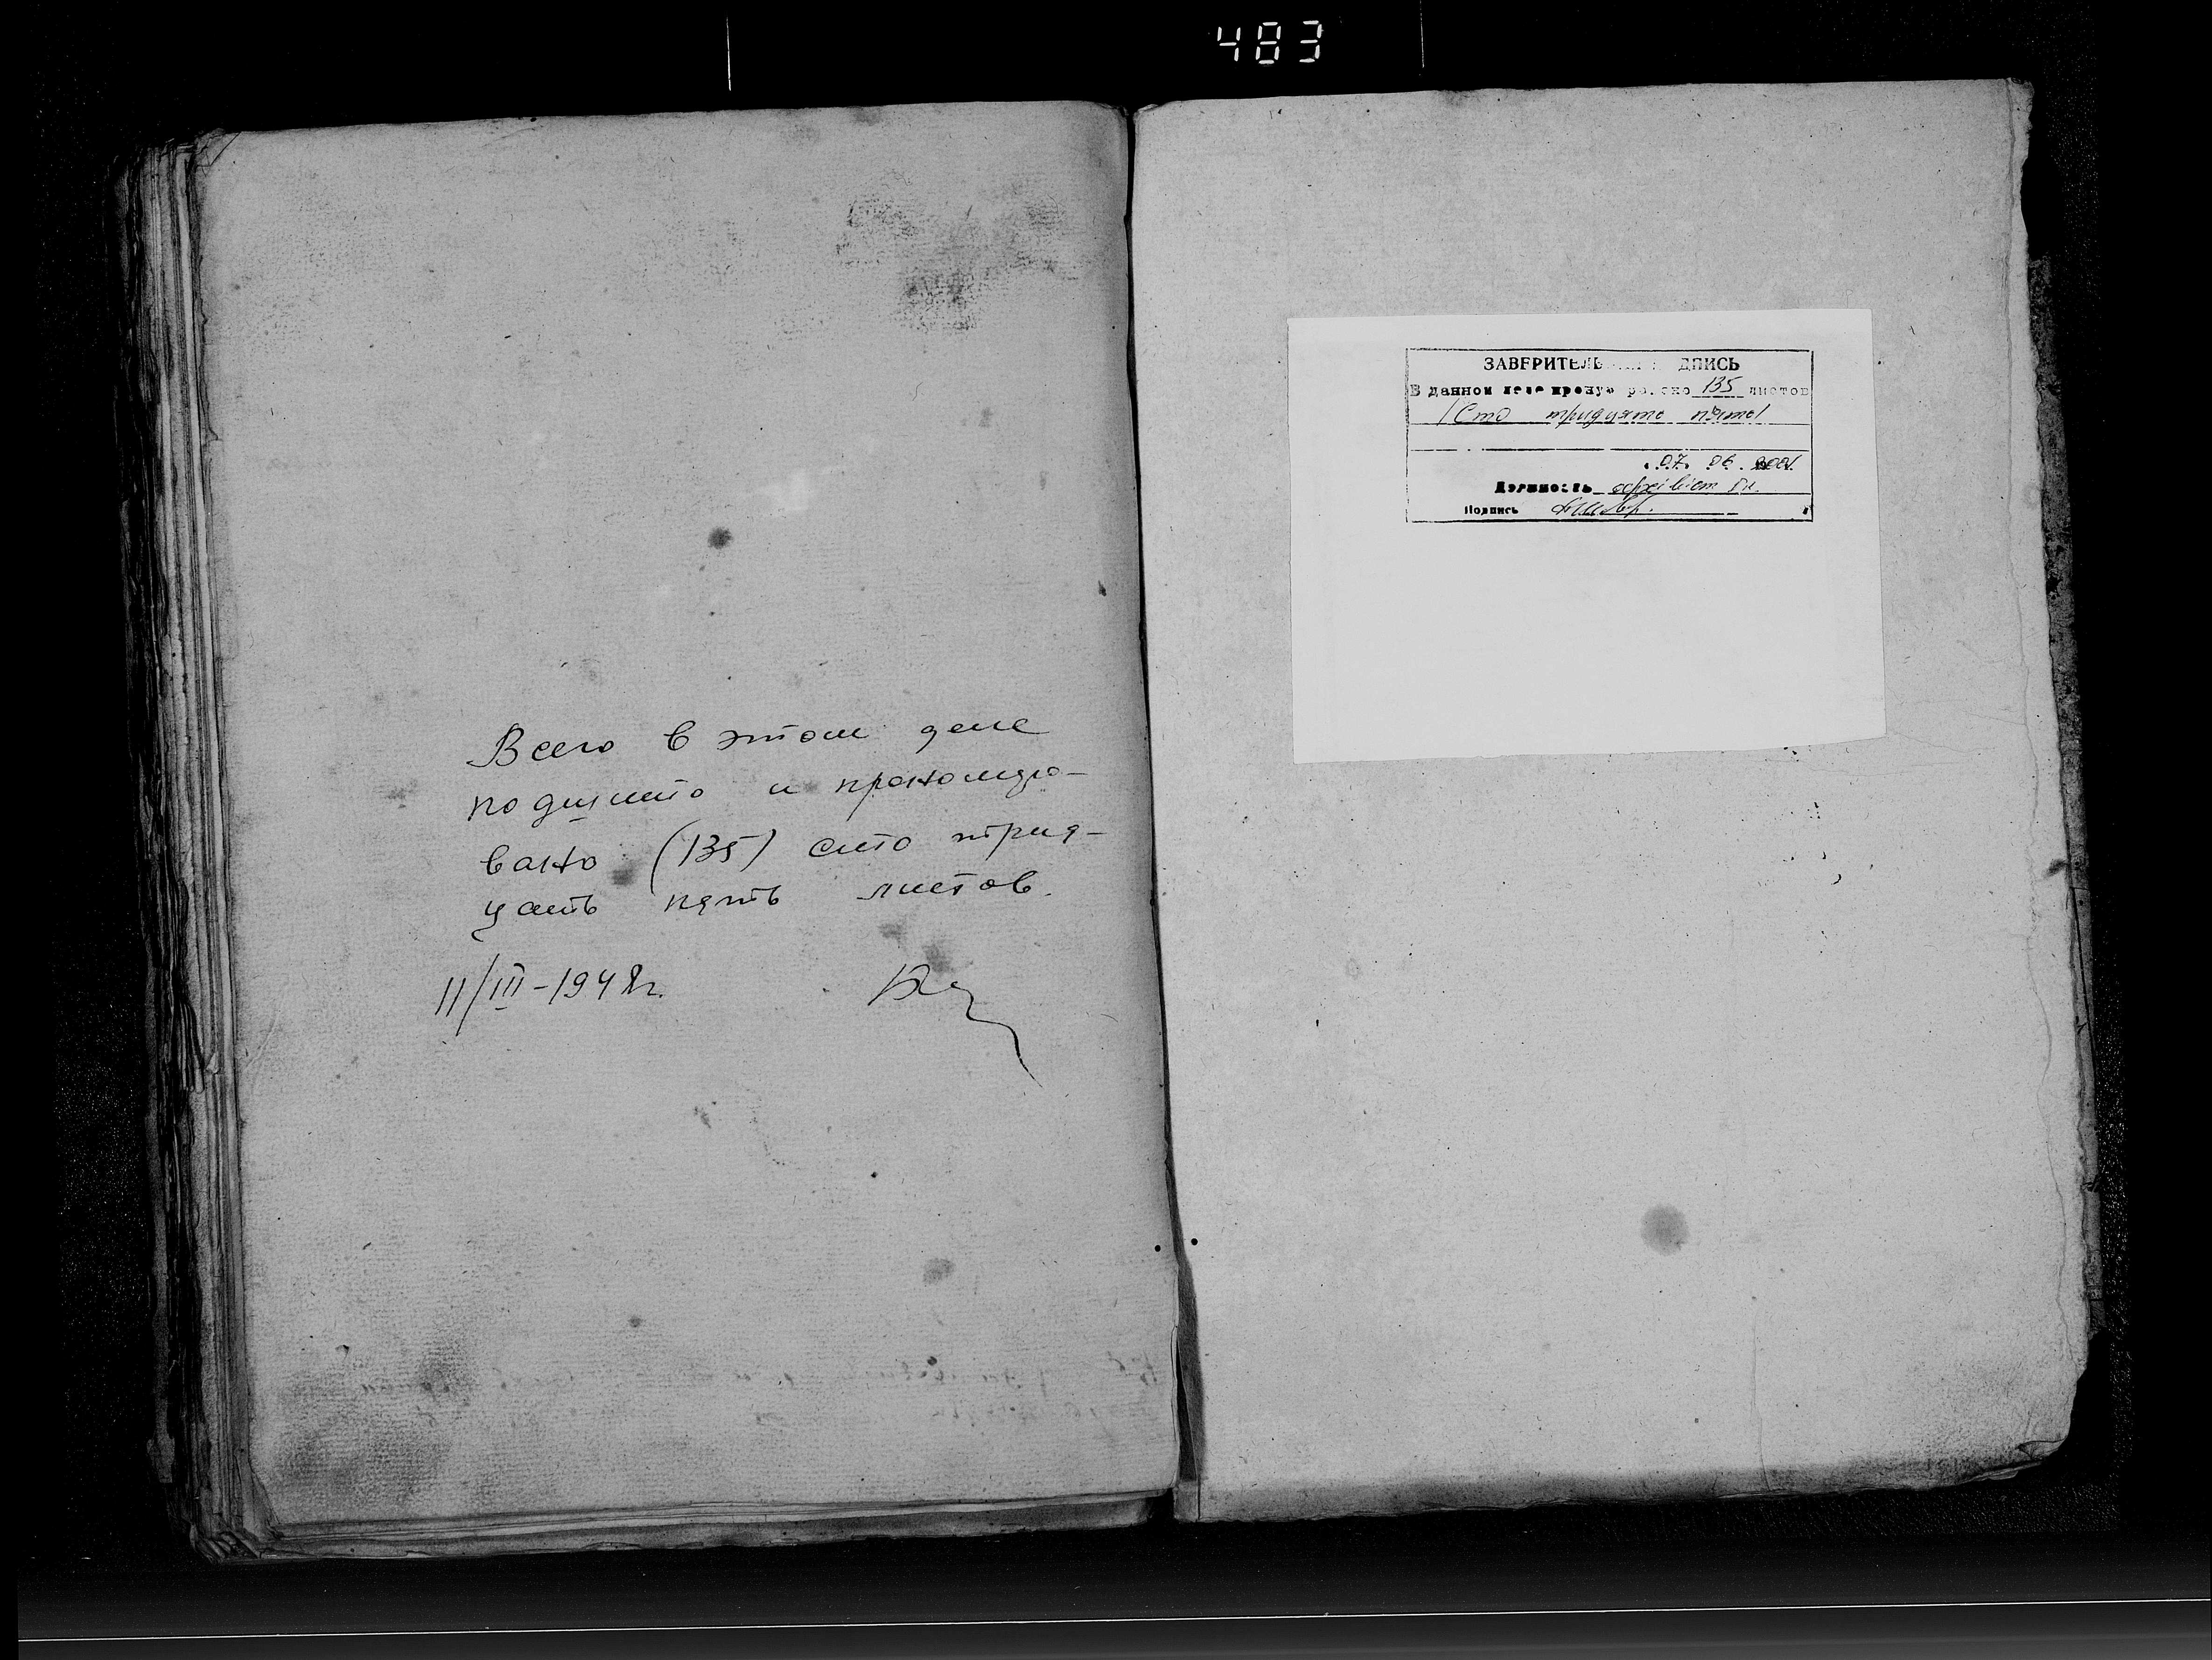 483
Всего в этом деле
подшито и прономеро-
вано (135) сто трид-
цать пять листов.
11/III-1948г.
ЗАВЕРИТЕЛЬ ДПИСЬ
В данном деле прону 135 листов
/Сто тридцять пять/
07. 06. 2001.
Должность архівіст
Подпись